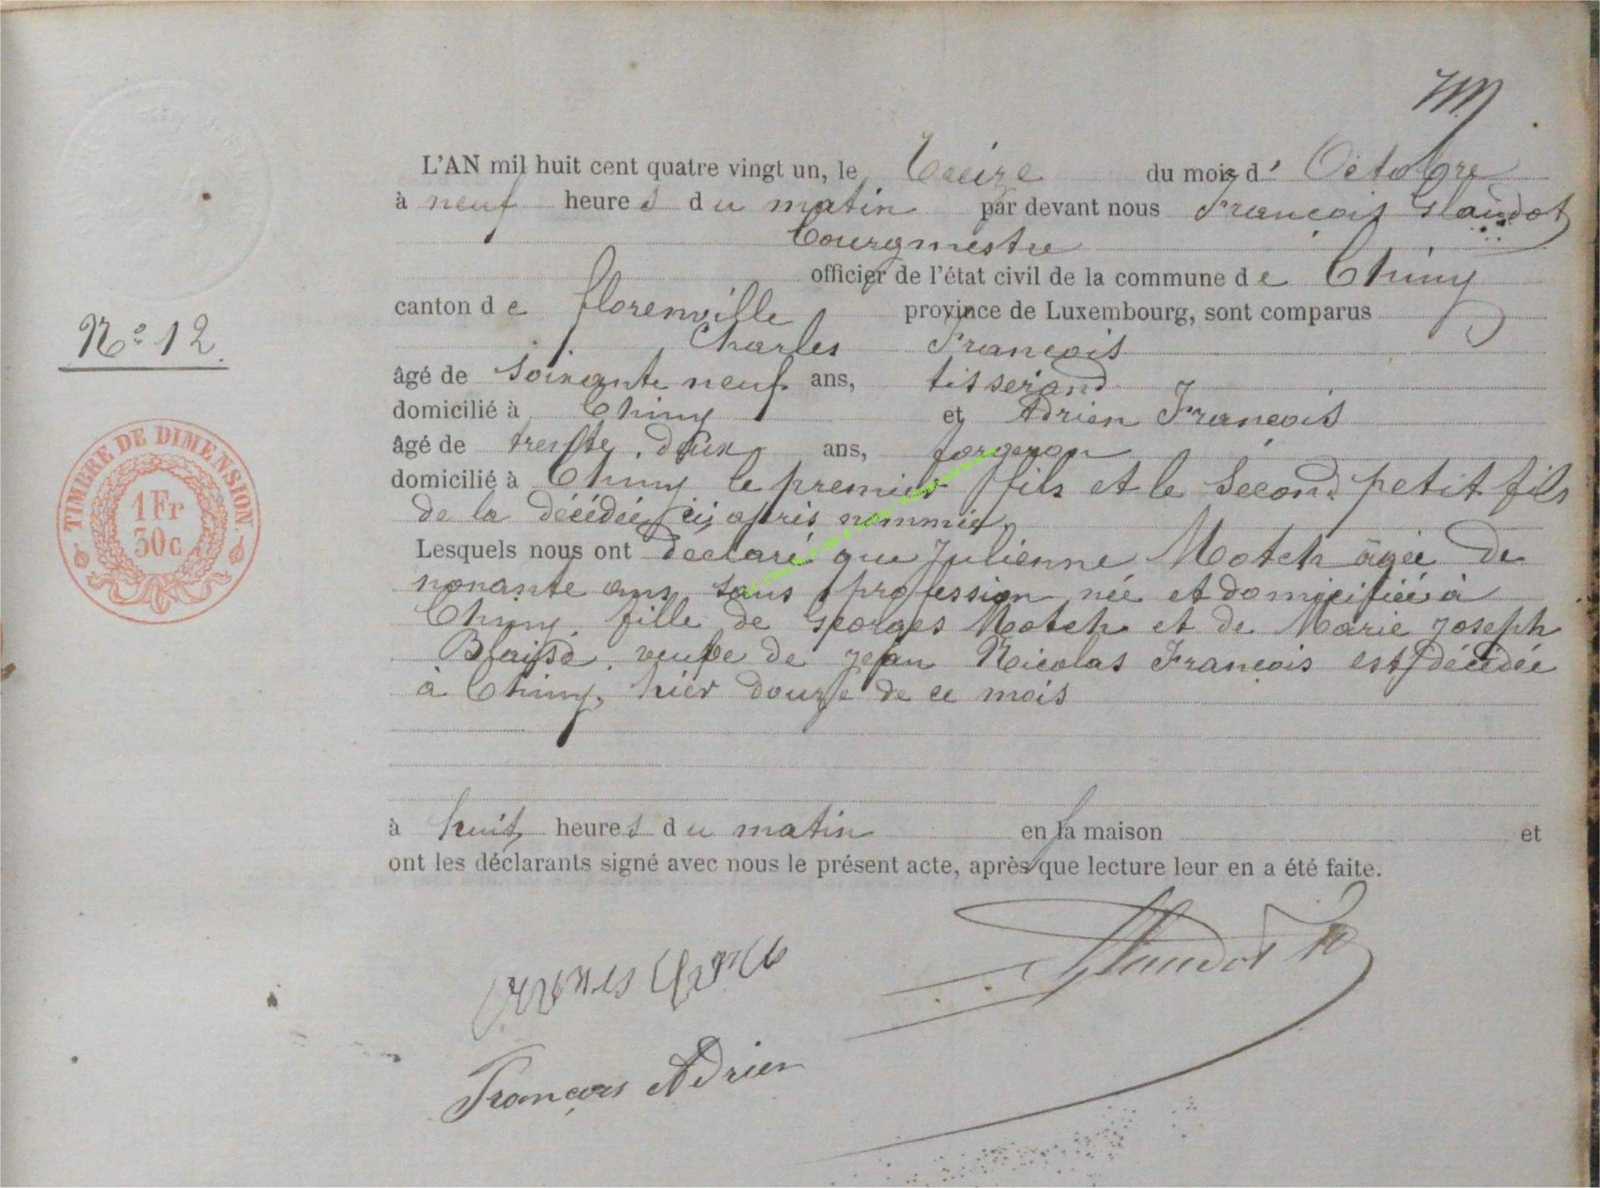 L'AN mil huit cent quatre vingt un, le treize du mois d'Octobre
à neuf heures du matin par devant nous François Glaudot
Bourgmestre
officier de l'état civil de la commune de Chiny
canton de florenville province de Luxembourg, sont comparus
N° 12
Charles François
âgé de soixante neuf ans, tisserand
domicilié à Chiny et Adrien François
âgé de trente deux ans, forgeron
domicilié à Chiny le premier fils et le second petit fils
de la décédée ci après nommée
TIMBRE DE DIMENSION.
1 Fr
30 c
Lesquels nous ont declaré que Julienne Motch âgée de
nonante ans sans profession née et domiciliée à
Chiny, fille de Georges Motch et de Marie Joseph
Blaise, veuve de Jean Nicolas François est décédée
à Chiny, hier douze de ce mois
à huit heures du matin en sa maison et
ont les déclarants signé avec nous le présent acte, après que lecture leur en a été faite.
Glaudot
François Adrien